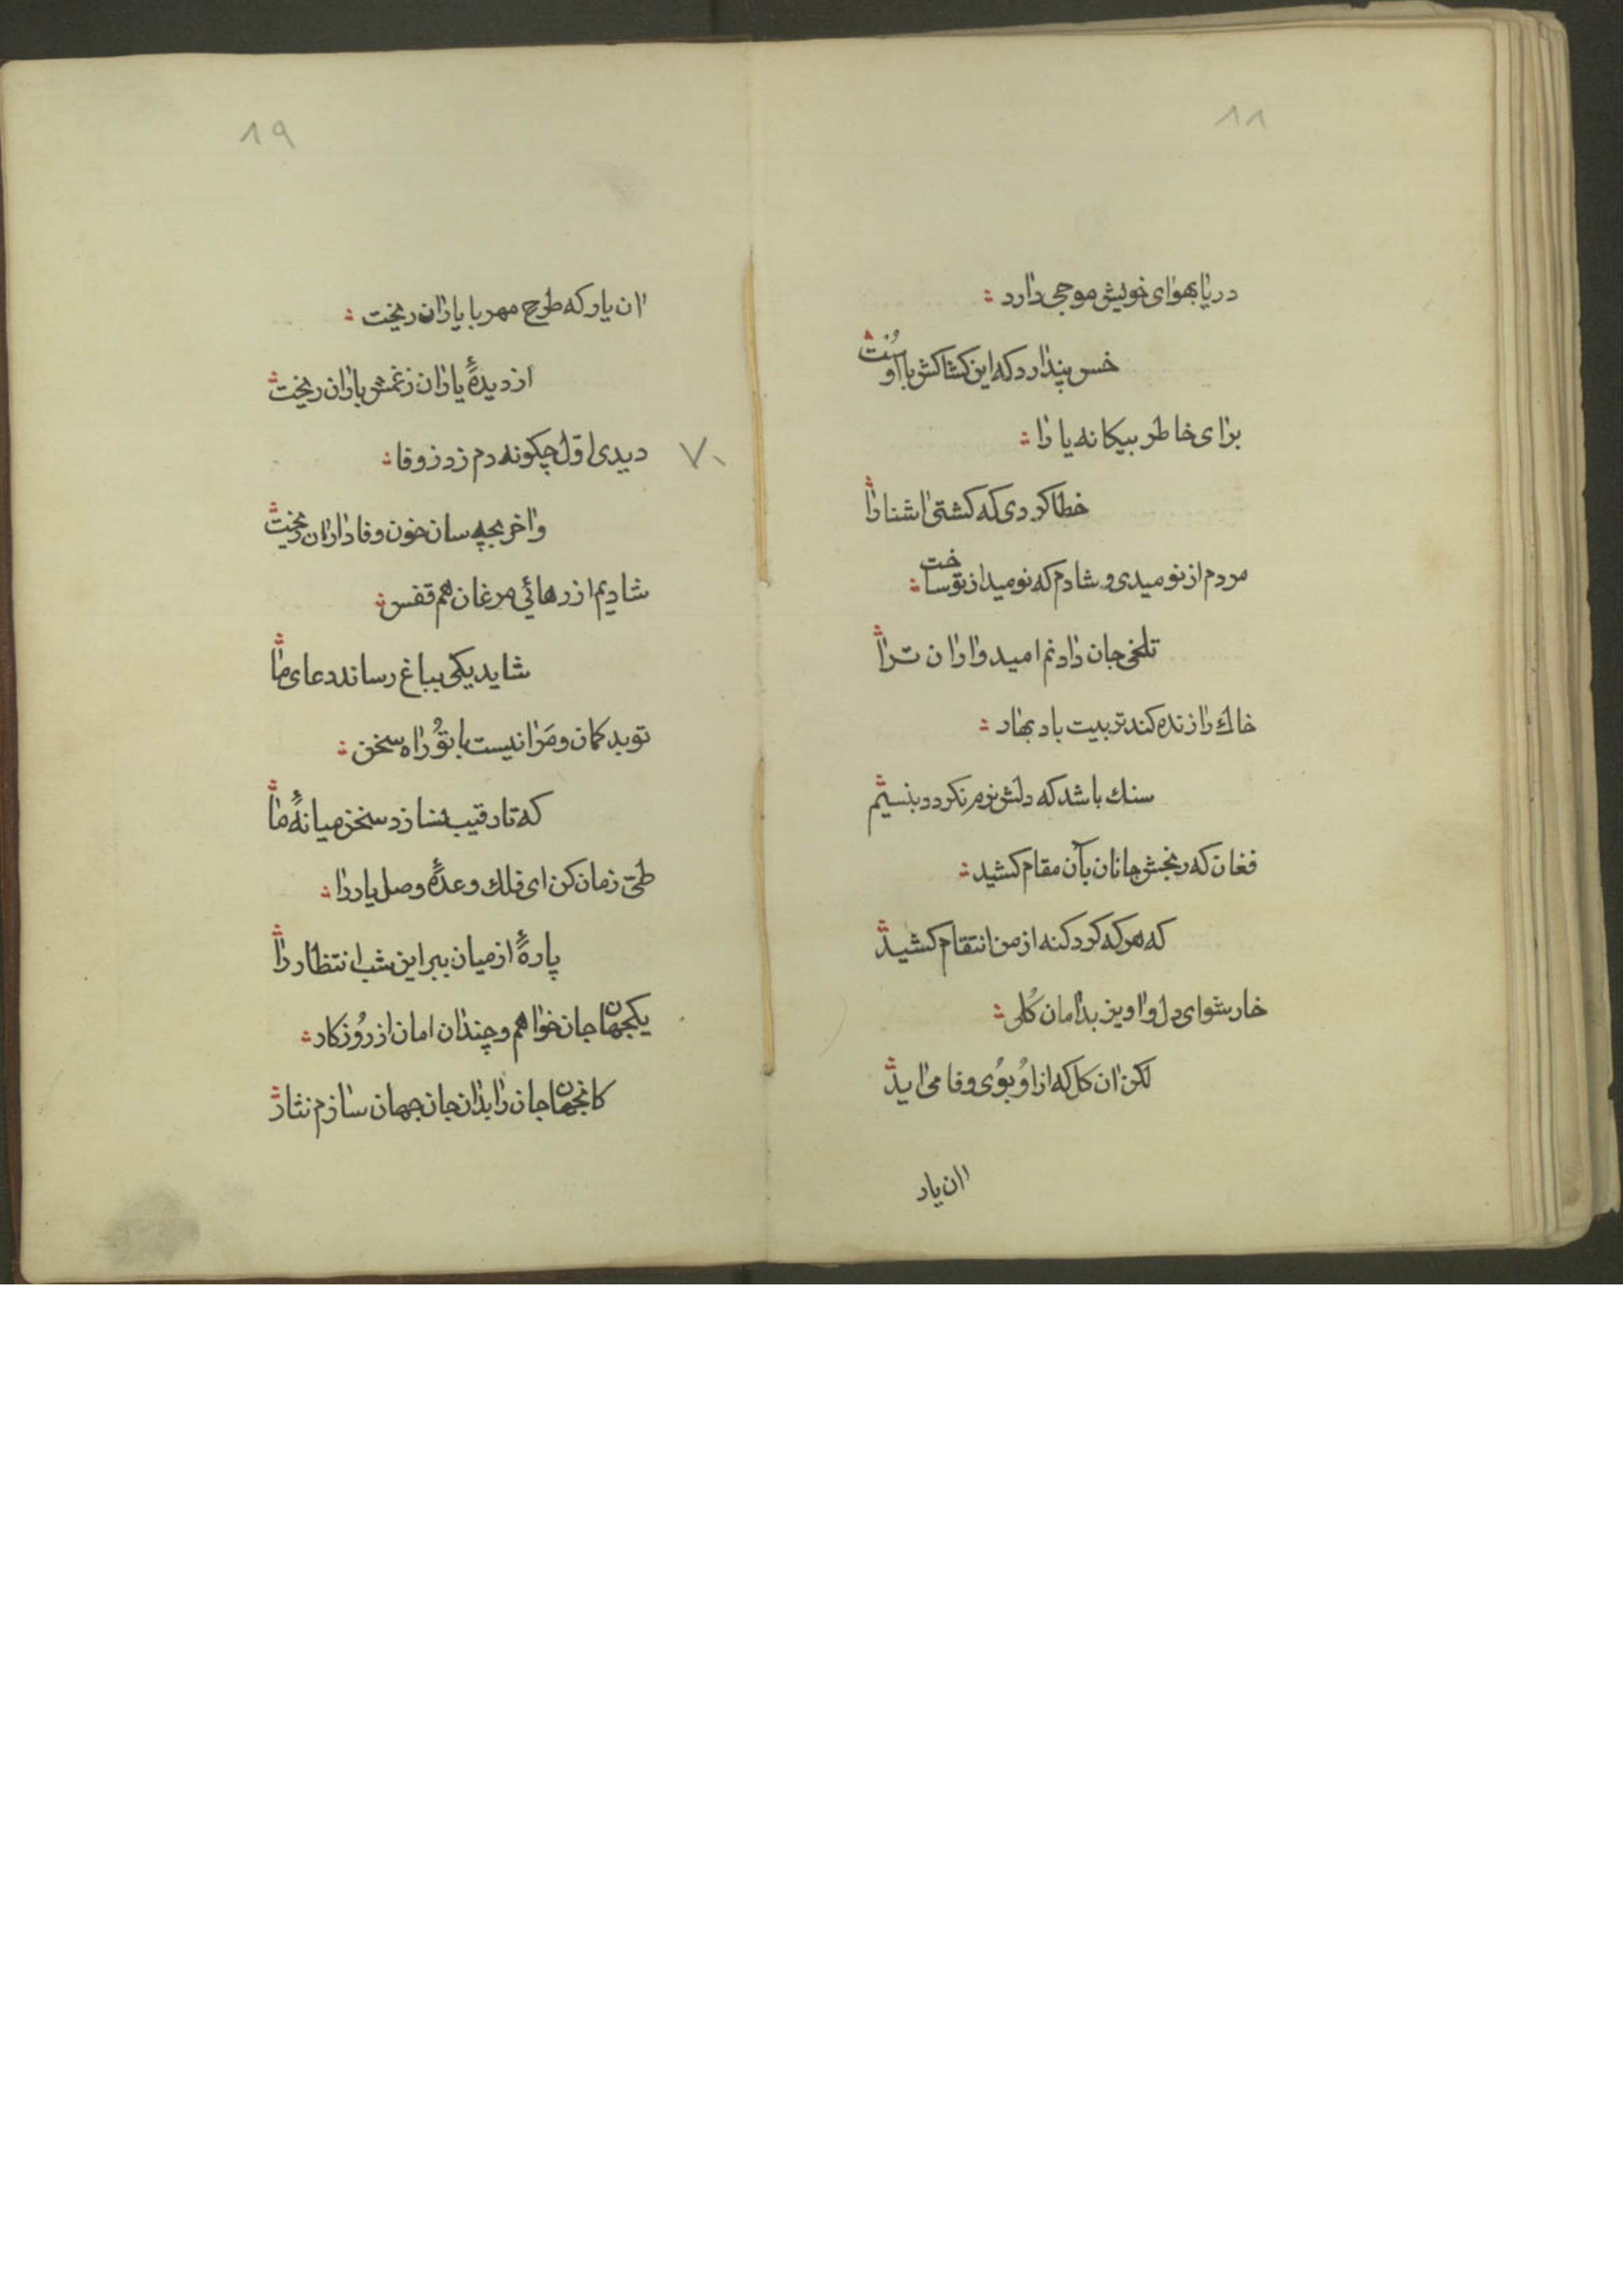 ۸۸
دریا بهوای خویش موجی دارد
خس پندارد که این کشاکش با اوست
برای خاطر بیکانه یارا
خطا کردی که کشتی اشنا را
مردم از نومیدی و شادم که نومید از تو ساخت
تلخی جان دادنم امیدواران ترا
خاك را زنده کند تربیت باد بهار
سنك باشد که دلش نرم نکردد بنسیم
فغان که رنجش جانان بآن مقام کشید
که هر که کرد کنه از من انتقام کشید
خار شو ای دل و اویز بدامان کُلی
لکن ان کل که از او بوُی وفا می اید
ان یار
۸۹
ان یار که طرح مهر با یاران ریخت
از دیدهٔ یاران زغمش باران ریخت
۷۰
دیدی اوّل چکونه دم زد ز وفا
واخر بچه سان خون وفاداران ریخت
شادیم از رهائی مرغان هم قفس
شاید یکی بباغ رساند دعای ما
تو بدکمان و مَرا نیست با تو راه سخن
که تا رقیب نسازد سخن میانهٔ ما
طیّ زمان کن ای فلك وعدهٔ وصل یار را
پارهٔ از میان ببر این شب انتظار را
یکجهان جان خواهم و چندان امان از روُزکار
کانجهان جان را بدان جان جهان سازم نثار